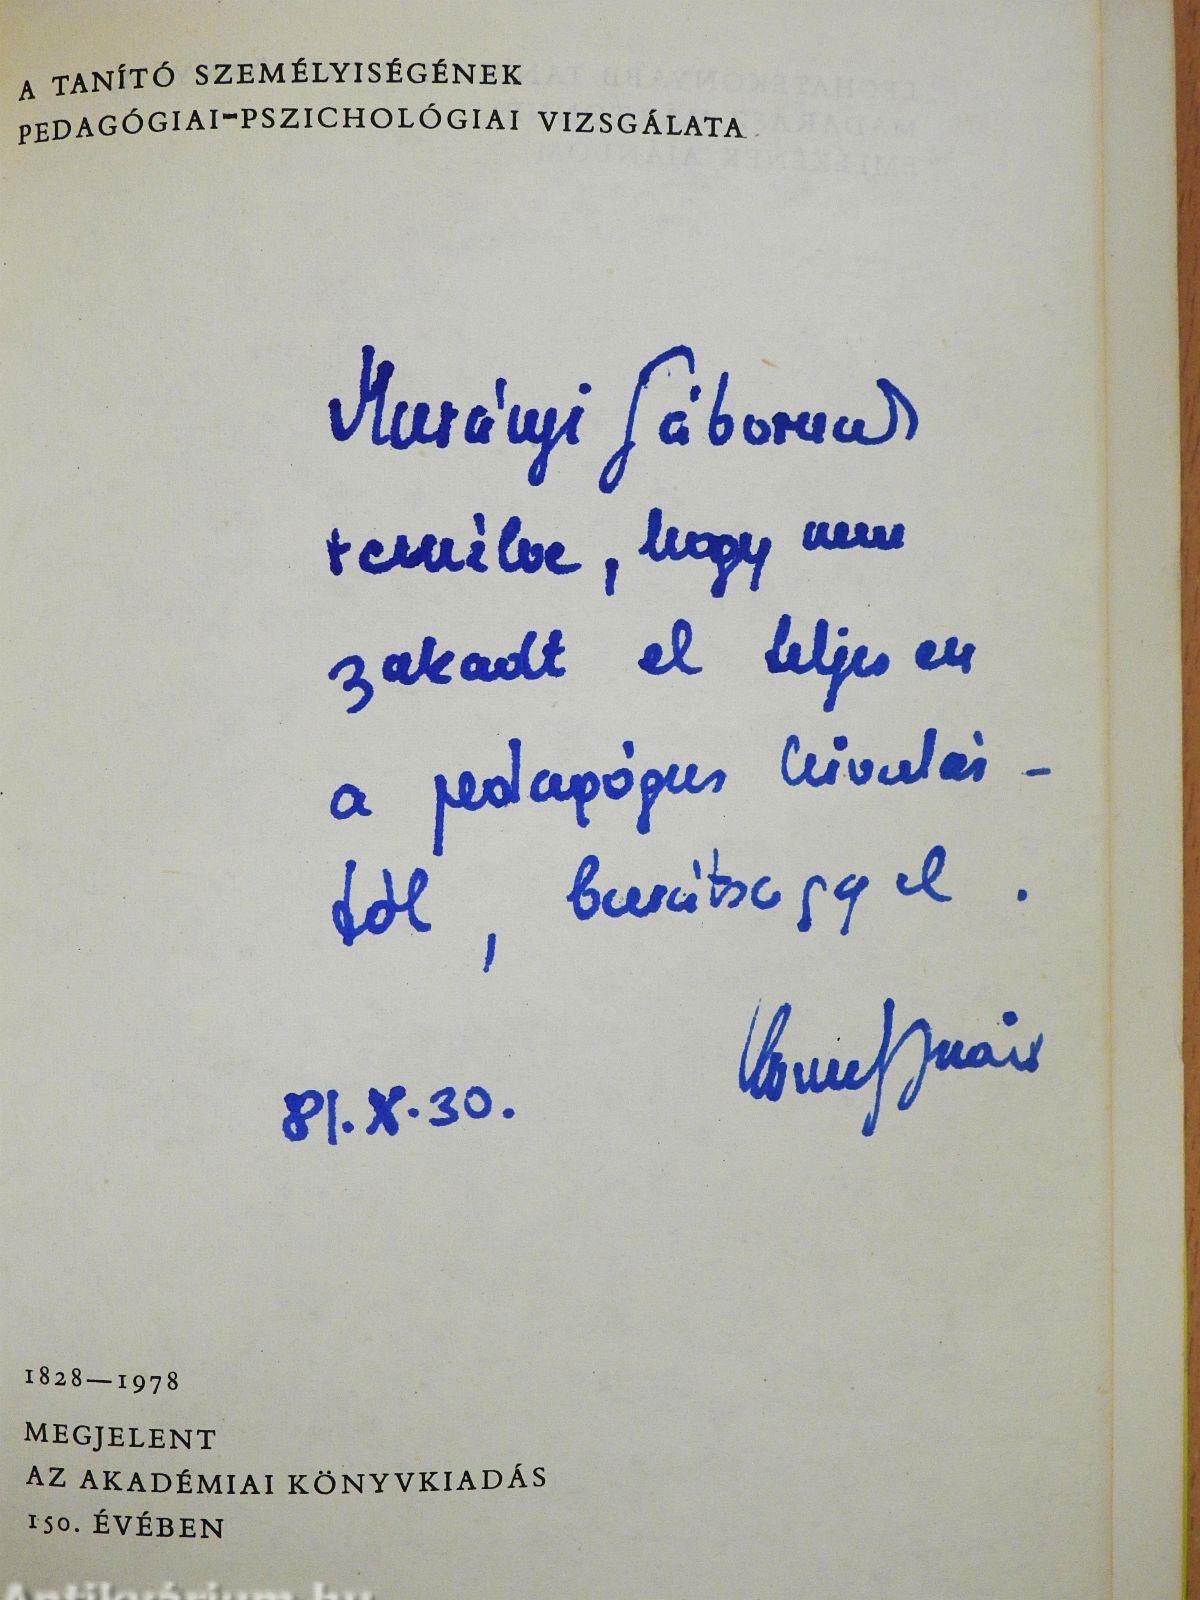 A TANÍTÓ SZEMÉLYISÉGÉNEK
PEDAGÓGIAI-PSZICHOLÓGIAI VIZSGÁLATA
Murányi Gábornak
remélve, hogy nem
szakadt el teljesen
a pedagógus hivatás-
tól, barátsággal.
81. X. 30.
1828—1978
MEGJELENT
AZ AKADÉMIAI KÖNYVKIADÁS
150. ÉVÉBEN
Antikvárium.hu